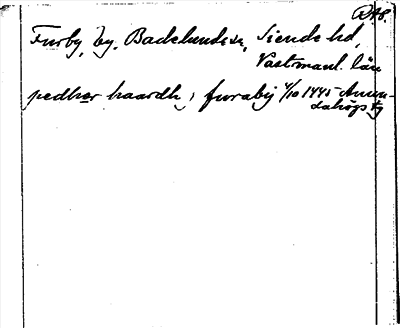 RAÄ.
Furby, by, Badelunda sn, Siende hd,
Västmanl. län
pedher haardh, i furaby 4/10 1445 Anun-
dahögs tg